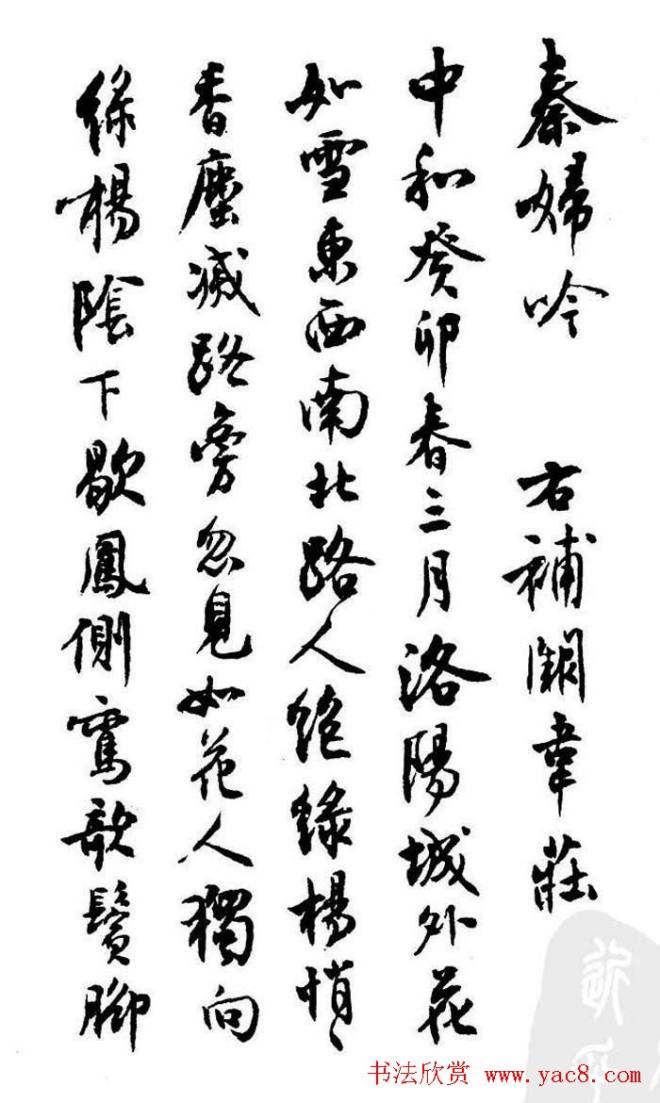 秦婦吟 右補闕韋莊
中和癸卯春三月洛陽城外花
如雪東西南北路人絕綠楊悄〻
香塵滅路旁忽見如花人獨向
綠楊陰下歇鳳側鸞欹鬢腳
书法欣赏 www.yac8.com